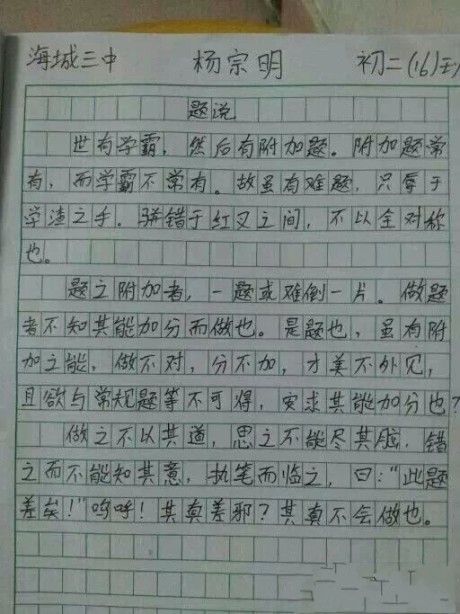 海城三中 杨宗明 初二(16)
题说
世有学霸，然后有附加题。附加题常
有，而学霸不常有。故虽有难题，只辱于
学渣之手。骈错于红叉之间，不以全对称
也。
题之附加者，一题或难倒一片。做题
者不知其能加分而做也。是题也，虽有附
加之能，做不对，分不加，才美不外见，
且欲与常规题等不可得，安求其能加分也？
做之不以其道，思之不能尽其脑，错
之而不能知其意，执笔而临之，曰：“此题
差矣！”呜呼！其真差邪？其真不会做也。